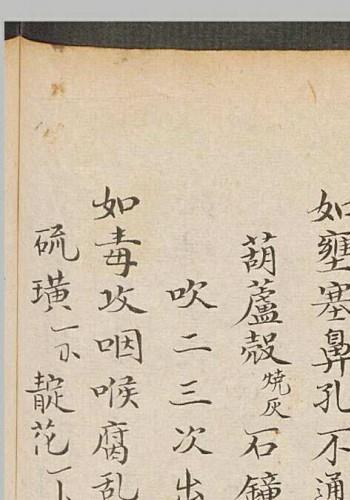 如壅塞鼻孔不通
葫蘆殼燒灰一石鐘
吹二三次出
如毒攻咽喉腐乱
硫璜一不靛花一